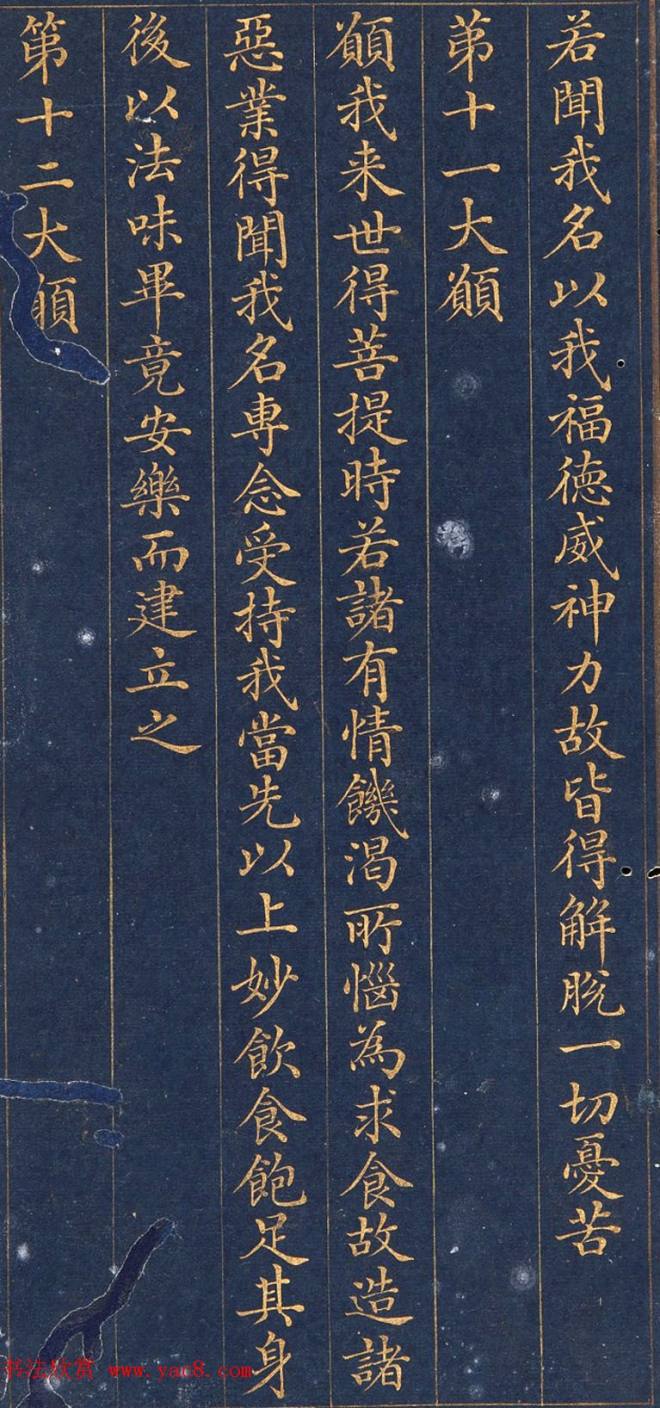 若聞我名以我福德威神力故皆得解脫一切憂苦
第十一大願
願我来世得菩提時若諸有情饑渴所惱為求食故造諸
惡業得聞我名專念受持我當先以上妙飲食飽足其身
後以法味畢竟安樂而建立之
第十二大願
书法欣赏 www.yac8.com